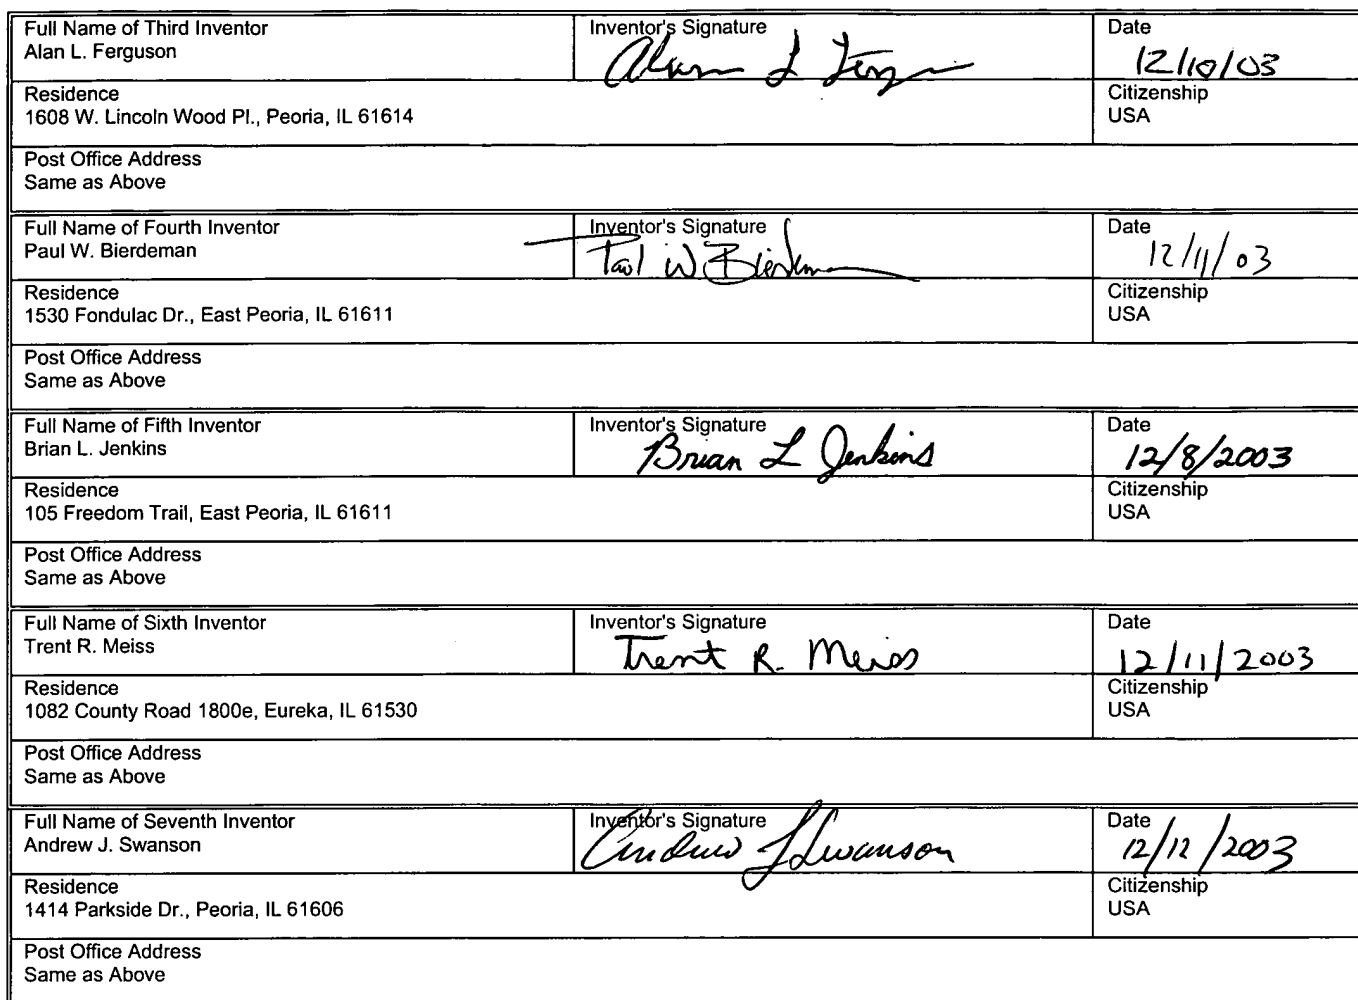 Full Name of Third Inventor
Alan L. Ferguson
Inventor's Signature
Alan L Ferg
Date
12/10/03
Residence
1608 W. Lincoln Wood Pl., Peoria, IL 61614
Citizenship
USA
Post Office Address
Same as Above
Full Name of Fourth Inventor
Paul W. Bierdeman
Inventor's Signature
Paul W Bierdeman
Date
12/11/03
Residence
1530 Fondulac Dr., East Peoria, IL 61611
Citizenship
USA
Post Office Address
Same as Above
Full Name of Fifth Inventor
Brian L. Jenkins
Inventor's Signature
Brian L Jenkins
Date
12/8/2003
Residence
105 Freedom Trail, East Peoria, IL 61611
Citizenship
USA
Post Office Address
Same as Above
Full Name of Sixth Inventor
Trent R. Meiss
Inventor's Signature
Trent R. Meiss
Date
12/11/2003
Residence
1082 County Road 1800e, Eureka, IL 61530
Citizenship
USA
Post Office Address
Same as Above
Full Name of Seventh Inventor
Andrew J. Swanson
Inventor's Signature
Andrew J Swanson
Date
12/12/2003
Residence
1414 Parkside Dr., Peoria, IL 61606
Citizenship
USA
Post Office Address
Same as Above